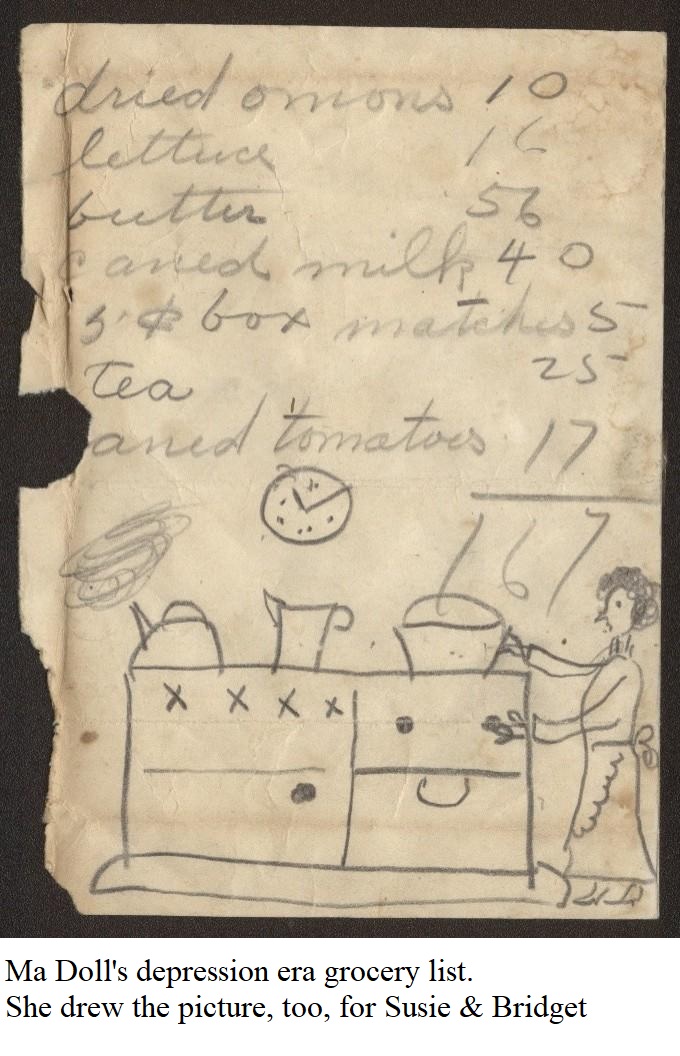 dried onions 10
lettuce 16
butter 56
caned milk 40
5 ¢ box matches 5
tea 25
aned tomatoes 17
167
Ma Doll's depression era grocery list.
She drew the picture, too, for Susie & Bridget